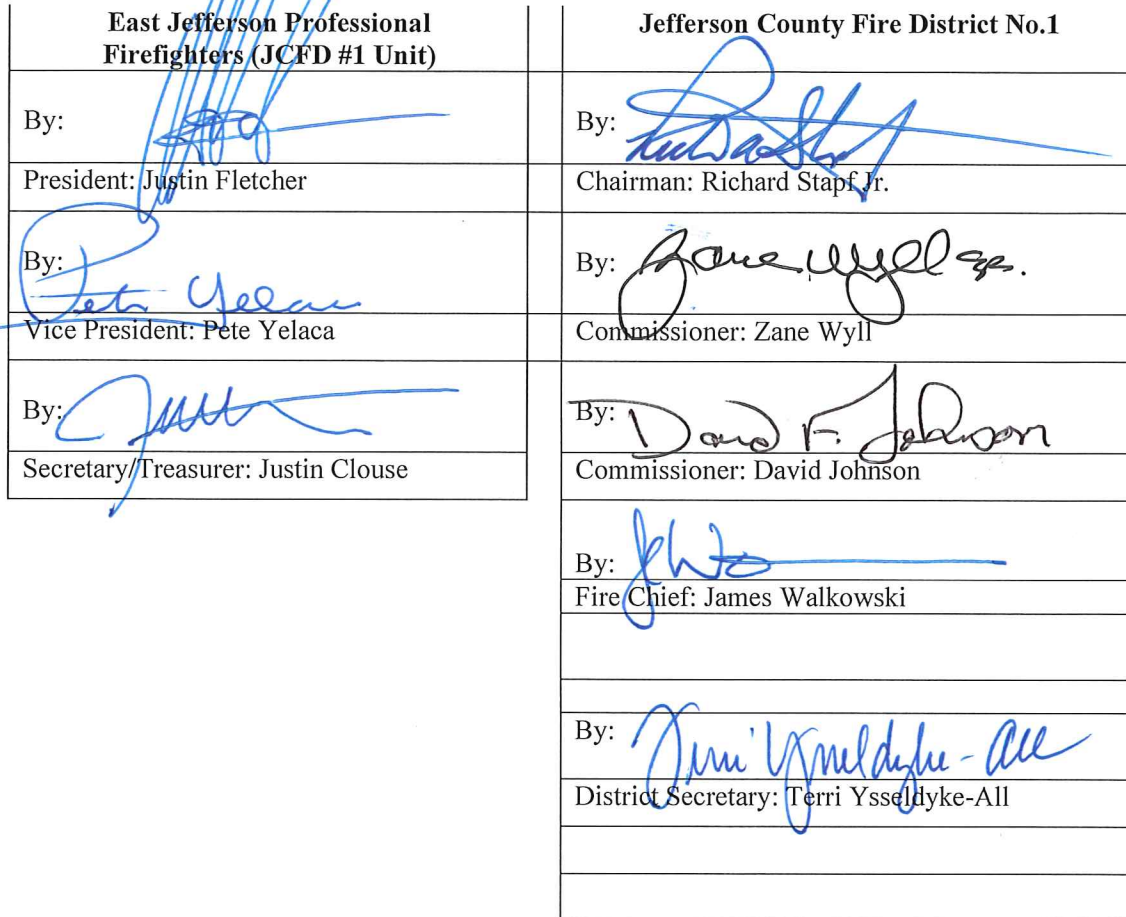 East Jefferson Professional
Firefighters (JCFD #1 Unit)
By:
President: Justin Fletcher
By:
Pete Yelaca
Vice President: Pete Yelaca
By:
Secretary/Treasurer: Justin Clouse
Jefferson County Fire District No.1
By:
Chairman: Richard Stapf Jr.
By: Zane Wyll
Commissioner: Zane Wyll
By: David F. Johnson
Commissioner: David Johnson
By:
Fire Chief: James Walkowski
By: Terri Ysseldyke-All
District Secretary: Terri Ysseldyke-All